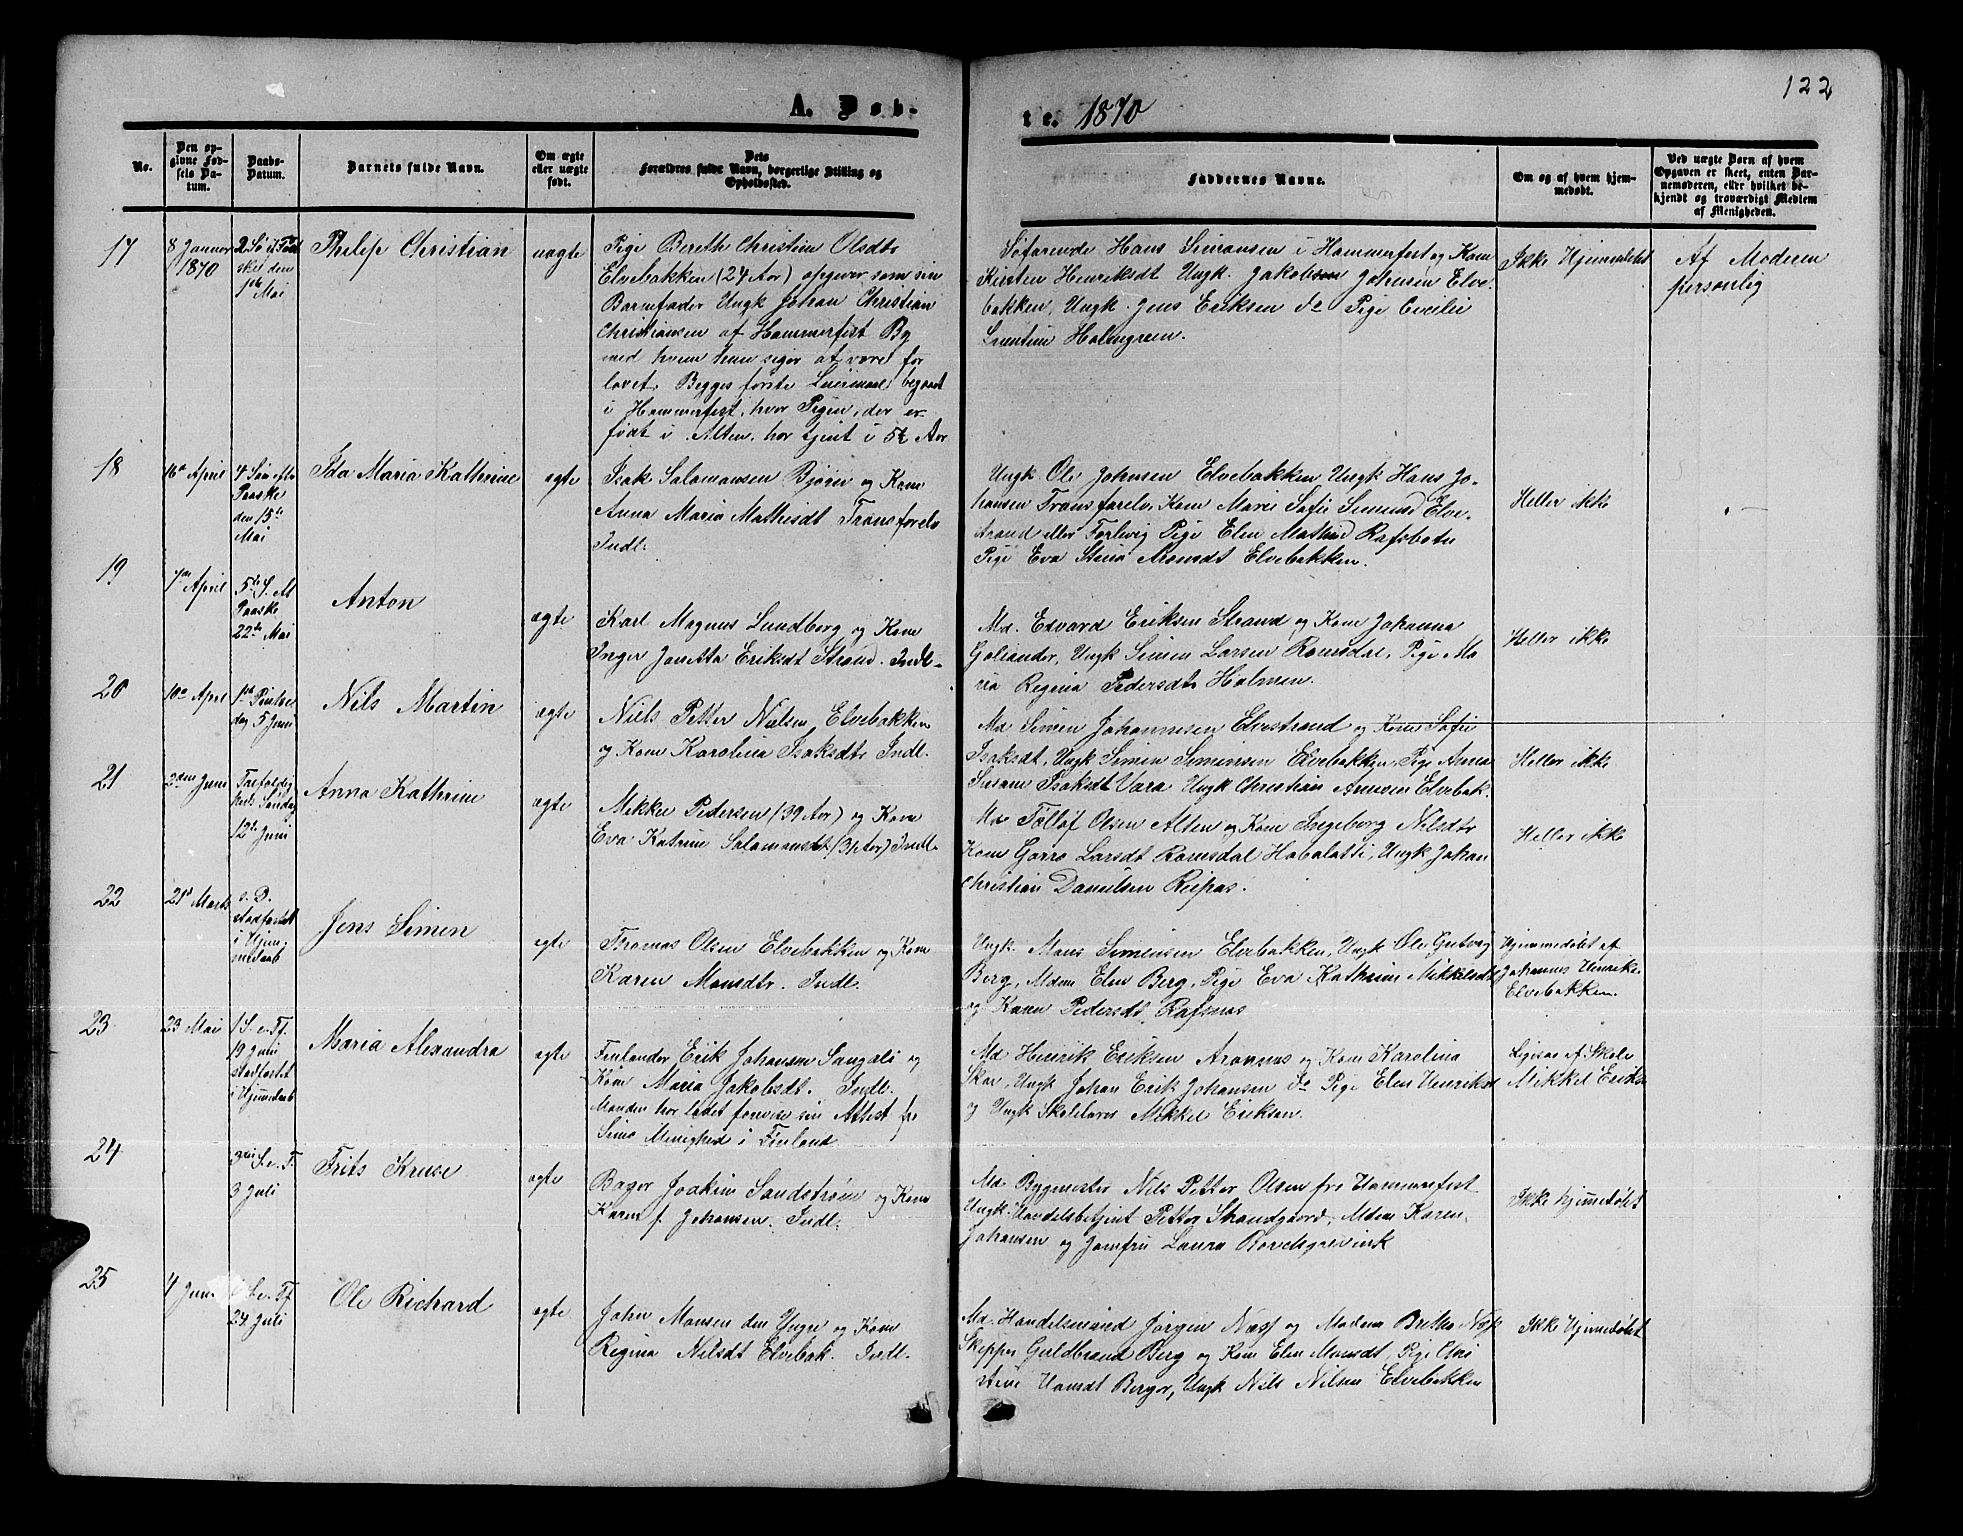 122
A. Døb-
te. 1870
No.
Den op-
givne Fød-
sels Da-
tum.
Daabs-
Datum.
Barnets fulde Navn.
Om ægte
eller uægte
født.
Dets
Forældres fulde Navn, borgerlige Stilling og
Opholdssted.
Faddernes Navne.
Om og af hvem hjem-
medøbt.
Ved uægte Børn af hvem
Opgaven er skeet, enten Bar-
nemoderen, eller hvilket be-
kjendt og troværdigt Medlem
af Menigheden.
17
8 Januar
1870
2 Sø
ske den
1ste Mai
Philip Christian
uægte
Pige Bereth Christine Olsdtr
Elvebakken (24 Aar) opgiver som sin
Barnefader Ungk Johan Christian
Christiansen af Hammerfest By
med hvem hun siger at være for
lovet. Begges første Leiermaal begaaet
i Hammerfest, hvor Pigen, der er
født i Alten, har tjent i 5½ Aar
Søfarende Hans Simonsen i Hammerfest og Kone
Kirsten Henriksdt Ungk. Jakob Johnsen Elve-
bakken, Ungk. Jens Eriksen do Pige Cecilie
Holmgreen.
Ikke Hjemmedøbt
Af Moderen
personlig
18
16de April
4 Søn efter
Paaske
den 15de
Mai
Ida Maria Kathrine
ægte
Isak Salamonsen Bjørn og Kone
Anna Maria Mathisdt Transfarelv
Indl.
Ungk Ole Johnsen Elvebakken, Ungk Hans Jo-
hansen Transfarelv, Kone Marie Sofie Simonsd Elve-
strand eller Forlvig Pige Elen Mathisd Rafsbotn
Pige Eva Stina Aronsdt Elvebakken.
Heller ikke
19
7de April
5te S. E
Paaske
22de Mai
Anton
ægte
Karl Magnus Lundberg og Kone
Inger Janetta Eriksdt Strand. Indl.
Md. Edvard Eriksen Strand og Kone Johanna
Goliander, Ungk Simen Larsen Romsdal, Pige Ma
ria Regina Pedersdtr Holmen.
Heller ikke
20
10de April
1ste Pintse
dag 5 Juni
Nils Martin
ægte
Niels Petter Nielsen Elvebakken
og Kone Karolina Isaksdtr Indl.
Md Simen Johannesen Elvestrand og Kone Sofie
Isaksdt, Ungk Simen Simensen Elvebakken, Pige Anna
Susana Isaksdt Vara Ungk Christian Aronsen Elvebak.
Heller ikke
21
2den Juni
Trefoldig
heds Søndag
12te Juni
Anna Kathrine
ægte
Mikkel Pedersen (39 Aar) og Kone
Eva Katrine Salamonsdt (31 Aar) Indl.
Md Tollof Olsen Alten og Kone Ingeborg Nilsdtr
Kone Garro Larsdt Romsdal Habalatti, Ungk Johan
Christian Danielsen Reipas.
Heller ikke
22
21de Marts
s. D.
stadfæstet
i Hjem-
medaab
Jens Simen
ægte
Thomas Olsen Elvebakken og Kone
Karen Monsdtr. Indl.
Ungk. Mons Simensen Elvebakken, Ungk Ole
Berg, Mdme Elen Berg, Pige Eva Kathrine Mikkelsdt
og Karen Pedersdt, Rafsnæs
Hjemmedøbt af
Johannes Henriksen
Elvebakken.
23
23 Mai
1 S. e. Tf.
19 Juni
stadfæstet
i Hjemmedaab
Maria Alexandra
ægte
Finlænder Erik Johansen Sangala og
Kone Maria Jakobsdt. Indl.
Manden har ladet forevise sin Attest fra
Simo Menighed i Finland
Md Henrik Eriksen Aronnæs og Kone Karolina
Skar, Ungk Johan Erik Johansen do Pige Elen Henriksd
og Ungk Skolelærer Mikkel Eriksen.
Ligesaa af Skole
Mikkel Eriks
24
3die S. e. T.
3 Juli
Frits Kruse
ægte
Bager Joakim Sandstrøm og Kone
Karen f. Johansen. Indl.
Md Bygmester Nils Petter Olsen fra Hammerfest
Ungk. Handelsbetjent Petter Strandgaard, Mdme Karen
Johansen og Jomfru Laura Bordsgrevink
Ikke hjemmedøbt
25
4 Juni
S. e. Tf
24 Juli
Ole Richard
ægte
John Monsen den Yngre og Kone
Regina Nilsdt Elvebak. Indl.
Md. Handelsmand Jørgen Næss og Madam Bertha Næss
Skipper Guldbrand Berg og Kone Elen Monsdt, Pige Chri
stine Hansdt Berger, Ungk Nils Nilsen Elvebakken
Ikke Hjemmedøbt